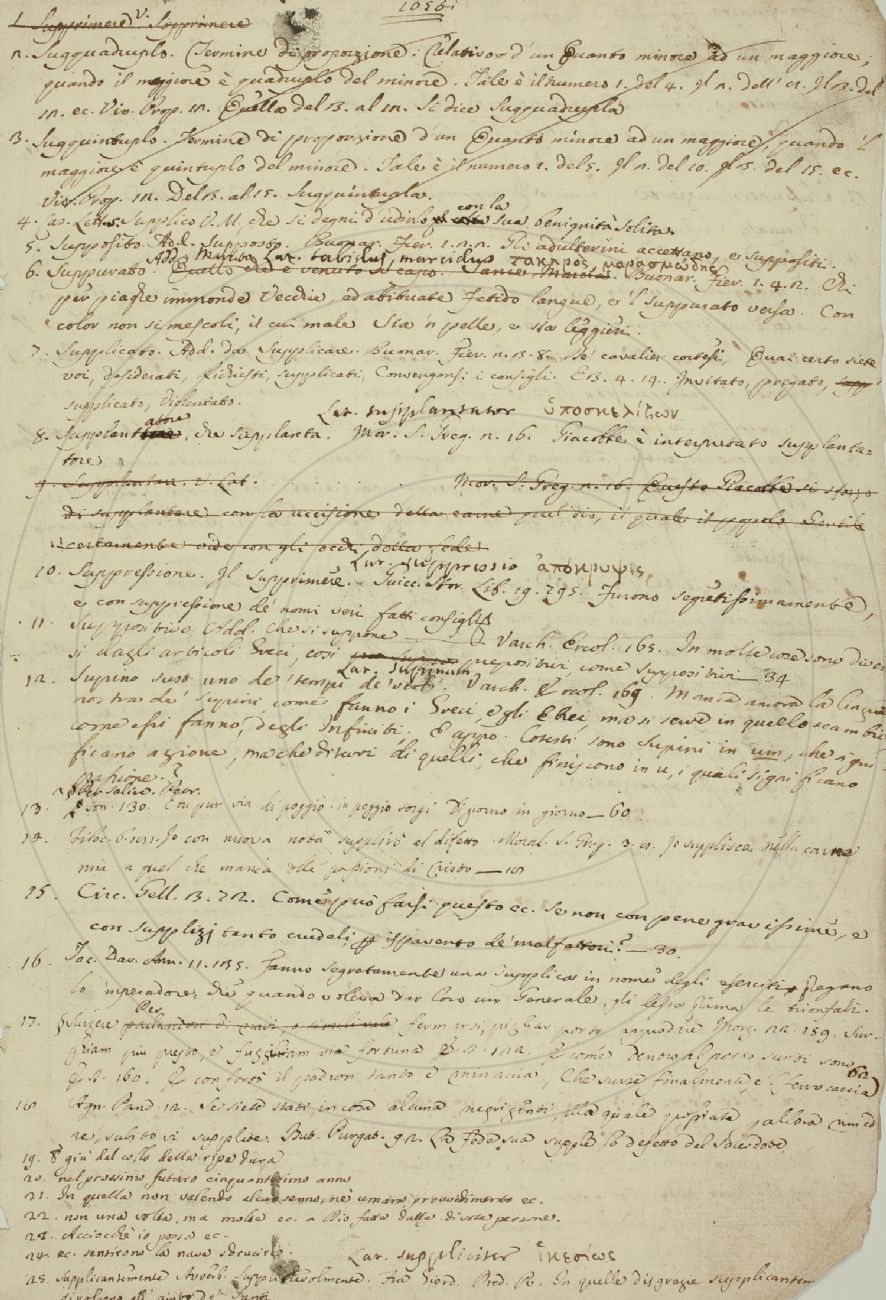 1656
1 Supprimere v. Sopprimere
2. Sugquadruplo. Termine di proporzione: Relativo d'un Quanto minore ad un maggiore;
quando il maggiore è quadruplo del minore. Tale è il numero 1. del 4. Il 2. dell' 8. Il 3. del
12. ec. Viv. Prop. 12. Quella del 3. al 12. Si dice Sugquadrupla
3. Sugquintuplo. Termine di proporzione d'un Quanto minore ad un maggiore, quando 'l
maggiore è quintuplo del minore. Tale è il numero 1. del 5. Il 2. del 10. Il 3. del 15. ec.
Viv. Prop. 12. Del 3. al 15. Sugquintupla.
4. Cas. Lett. Supplico V. M. che si degni d'udirlo con la sua benignità solita.
5. Supposito. Add. Supposto. Buonar. Fier. 1. 2. 2. Gli adulterini accettano, e suppositi.
Add. Marcito Lat. tabidus, marcidus τακηρός, μαρασμώδης
6. Suppurato. Quello che è venuto a capo. Buonar. Fier. 1. 4. 2. Chi
per piaghe immonde Vecchie, ed abituate Fetido langue, e 'l suppurato versa. Con
color non si mescoli, il cui male Sta 'n pelle, e sta leggieri.
7. Supplicato. Add. da Supplicare. Buonar. Fier. 2. 3. 8. Se' cavalier cortesi, Quai certo siete
voi, desiderati, Richiesti, supplicati, Convengonsi i consigli. E 3. 4. 14. Invitato, pregato,
supplicato, violentato.
Lat. supplantator ὑποσκελίζων
8. Supplantatore, che supplanta. Mor. S. Greg. 2. 16. Giacobbe è interpretato supplanta-
tore
9. Supplantare. v. Lat. Mor. S. Greg. 2. 16. Questo Giacobbe si sforzò
di supplantare con la uccisione della carne quel dio, il quale il popolo Gentile
certamente vide con gli occhi della fede
Lat. suppressio ἀπόκρυψις,
10. Suppressione. Il Supprimere. Guicc. Stor. Lib. 19. 295. Furono segretissimamente,
e con suppressione de' nomi veri fatti consigli
11. Suppositivo, Add. che si suppone Varch. Ercol. 165. In molte cose sono diver
si dagli articoli Greci, così prepositivi, come suppositivi — 34
Lat. supinum
12. Supino sust. uno de' tempi de' verbi. Varch. Ercol. 169. Manca ancora la lingua
nostra de' supini, come fanno i Greci e gli Ebrei, ma si serve in quello scambio
come essi fanno, degli Infiniti. E appo. Cotesti sono supini in um, che signi-
ficano azione, ma che direte di quelli, che finiscono in u, i quali significano
passione.
13. Son. 130. E ou pur via di poggio in poggio sorgi Di giorno in giorno — 60
14. Filoc. Io con nuova nota supplirò al difetto. Moral. S. Greg. 3. 9. Io supplisco nella carne
mia a quel che manca alle passioni di Cristo — 18
15. Circ. Gell. 3. 72. Come può farsi questo ec. se non con pene gravissime, e
con supplizj tanto crudeli per ispavento de' malfattori? — 30.
16. Tac. Dav. Ann. 11. 135. Fanno segretamente una supplica in nome degli eserciti, Pregano
lo imperadore, che quando voleva dar loro un Generale, gli desse prima le trionfali.
17. Surgere Per fermarsi, pigliar porto Morg. 22. 159. Sur-
gevam più presto, e fuggivam via fortuna E st. 122. E come dentro al porto surti sono
E st. 160. E confortò il padron tanto e minaccia, Che surse finalmente, e 'l ferro caccia
18 Agn. Pand. 12. Se siete stati in cosa alcuna negligenti, alla quale possiate allora rimedia
re, subito vi supplite. But. Purgat. 9. 2. La fede sua supplè lo defetto del Sacerdote
19. E giù del collo della ripa dura
20. nel prossimo futuro cinquantesimo anno
21. In quella non valendo alcun senno, ne umano provvedimento ec.
22. non una volta, ma molte ec. a Dio fatte dalle divote persone.
23. Acciocchè io possa ec.
24. ec. sentirono la nave sdrucire.
Lat. suppliciter ἱκεσίως
25. Supplicantemente Avverb. Supplichevolmente. Fra Giord. Pred. R. In quelle disgrazie supplicantem